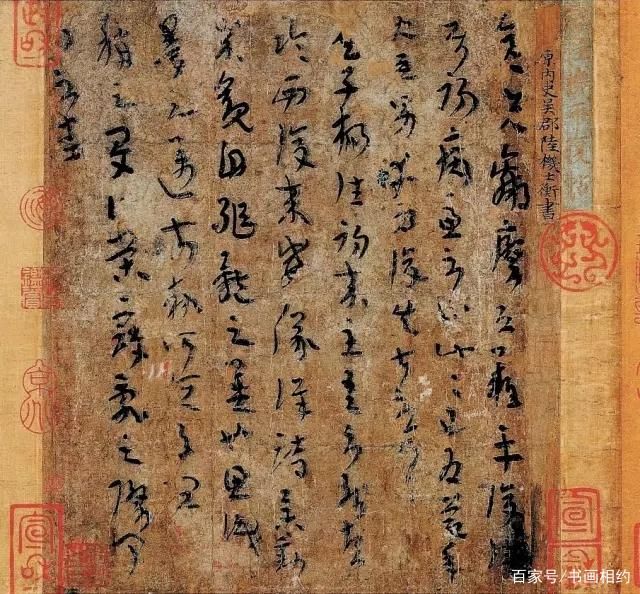 原内史吴郡陸機士衡書
彦先羸瘵恐難平復往屬
初病慮不止此此已為慶承
使唯男幸為復失前憂耳
吳子楊往初來主吾不能盡
臨西復來威儀詳跱舉動
成觀自軀體之美也思識
量之邁前執所恆有宜
稱之夏伯榮寇亂之際聞
問不悉
宣
宣
百家号/书画相约